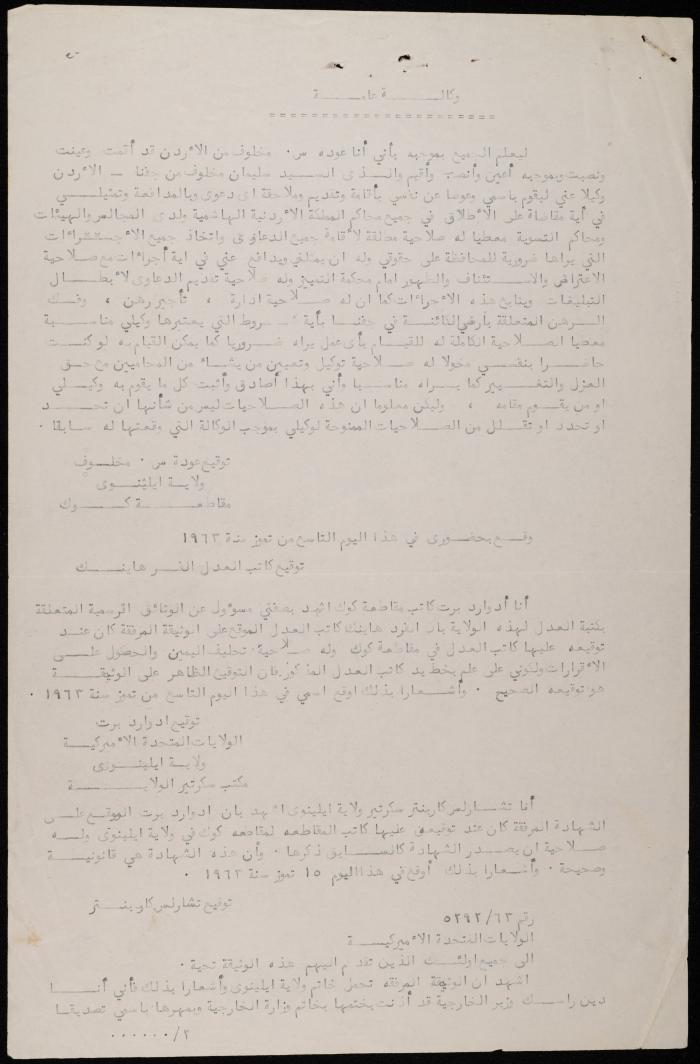 وكالــــــة عامـــــة
ليعلم الجميع بموجبه بأني أنا عوده س. مخلوف من الأردن قد أقمت وعينت
ونصبت وبموجبه أعين وأنصب وأقيم والــدي السيد سليمان مخلوف من جفنا – الأردن
وكيلا عني ليقوم باسمي وعوضا عن نفسي بأقامة وتقديم وملاحقة اى دعوى وبالمدافعة وتمثيلــي
في أية مقاضاة على الأطلاق في جميع محاكم المملكة الأردنية الهاشمية ولدى المجالس والهيئات
ومحاكم التسوية معطيا له صلاحية مطلقة لأقامة جميع الدعاوى واتخاذ جميع الأجراءات
التي يراها ضرورية للمحافظة على حقوقي وله ان يمثلني ويدافع عني في اية أجراءات مع صلاحية
الاعتراض والاستئناف والظهور امام محكمة التمييز وله صلاحية تقديم الدعاوى لأبطــال
التبليغات ونتائج هذه الأجراءات كما ان له صلاحية ادارة ، تأجير رهن ، وفــك
الــرهن المتعلقة بأرضي الكائنــة في جفنــا بأية شــروط التي يعتبرها وكيلي مناسـبة
معطيا الصلاحية الكاملة له للقيــام بأى عمل يراه ضــروريا كما يمكن القيام به لو كنــت
حاضــرا بنفســي مخولا له صلاحية توكيل وتعيين من يشــاء من المحاميين مع حــق
العزل والتغــيير كما يــراه مناسبــا وأني بهذا أصادق وأثبت كل ما يقوم به وكيــلي
او من يقــوم مقامه ، وليكن معلوما ان هذه الصــلاحيات ليس من شأنها ان تحــد
او تحدد او تقــلل من الصــلاحيات الممنوحة لوكيلي بموجب الوكالة التي وقعتها له سابقا .
توقيع عودة س . مخلــوف
ولايــة ايلينــوى
مقاطعــــة كــوك
وقــع بحضورى في هذا اليوم التاسع من تموز سنة ١٩٦٣
توقيع كاتب العدل الفــر هاينــك
أنا أدوارد برت كاتب مقاطعة كوك اشهد بصفتي مسؤول عن الوثائق الرسمية المتعلقة
بكتبة العدل لهذه الولاية بان الفرد هاينك كاتب العدل الموقع على الوثيقة المرفقة كان عنــد
توقيعه عليها كاتب العدل في مقاطعة كوك وله صلاحية تحليف اليمين والحصول علــى
الأقرارات ولكوني على علم بخط يد كاتب العدل المذكور فان التوقيع الظاهر على الوثيقــة
هو توقيعه الصحيح . وأشعــارا بذلك اوقع اسمي في هذا اليوم التاسع من تموز سنة ١٩٦٣ .
توقيع ادوارد برت
الولايات المتحدة الأميركيــة
ولايــة ايلينــوى
مكتب سكرتير الولايــــة
أنا تشــارلس كاربنتر سكرتير ولاية ايلينوى اشهد بان ادوارد برت الموقع علــى
الشهادة المرفقة كان عند توقيعه عليها كاتب المقاطعه لمقاطعه كوك في ولاية ايلينوى ولــه
صــلاحية ان يصــدر الشهادة كالســابق ذكرها . وأن هذه الشهادة هي قانونيــة
وصحيحة . وأشعارا بذلك أوقع في هذا اليوم ١٥ تموز سنة ١٩٦٣ .
توقيع تشارلس كاربنتر
رقم ٥٢٩٢/٦٣
الولايات المتحدة الأميركيــة
الى جميع اولئــك الذين تقدم اليهم هذه الوثيقة تحية .
اشهد ان الوثيقة المرفقه تحمل خاتم ولاية ايلينوى وأشعارا بذلك فأني أنــا
دين راســك وزير الخارجية قد أذنت بختمها بخاتم وزارة الخارجية وبمهرها باسمي تصديقا
٢/......